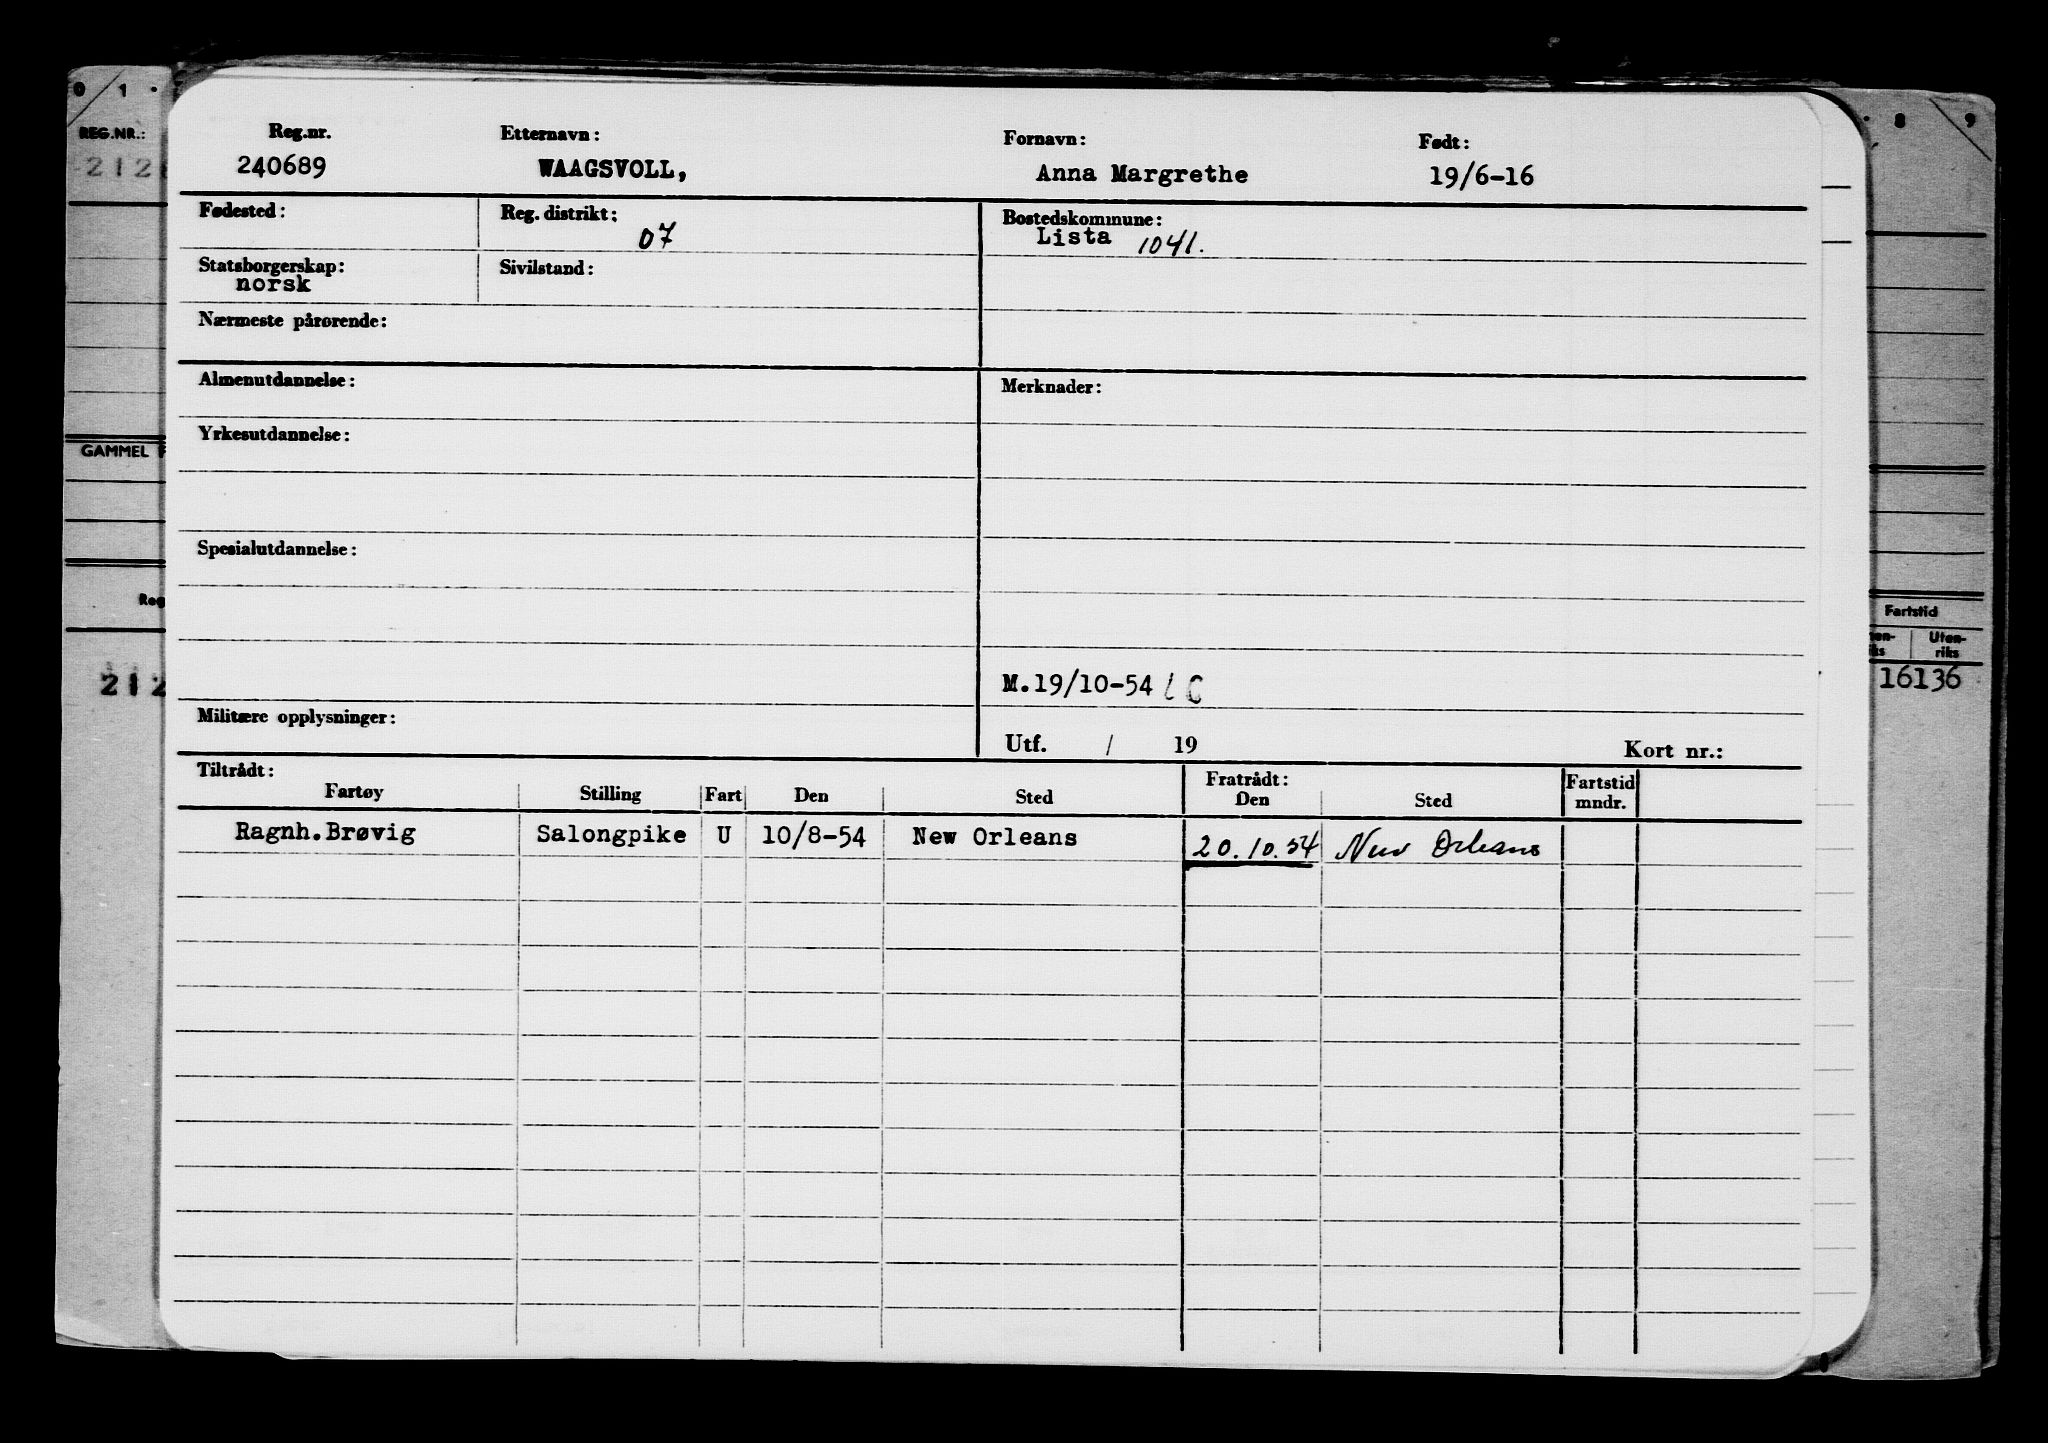 0 1 . 8 9
REG.NR.:
Reg.nr. Etternavn: Fornavn: Født:
240689 WAAGSVOLL, Anna Margrethe 19/6-16
Fødested: Reg. distrikt: Bostedskommune:
07 Lista 1041.
Statsborgerskap: Sivilstand:
norsk
Nærmeste pårørende:
Almenutdannelse: Merknader:
Yrkesutdannelse:
GAMMEL
Spesialutdannelse:
Reg
Fartstid
Uten-
riks
212 16136
M.19/10-54 LC
Militære opplysninger:
Utf. / 19 Kort nr.:
Tiltrådt: Fratrådt: Fartstid
Fartøy Stilling Fart Den Sted Den Sted mndr.
Ragnh.Brøvig Salongpike U 10/8-54 New Orleans 20.10.54 New Orleans